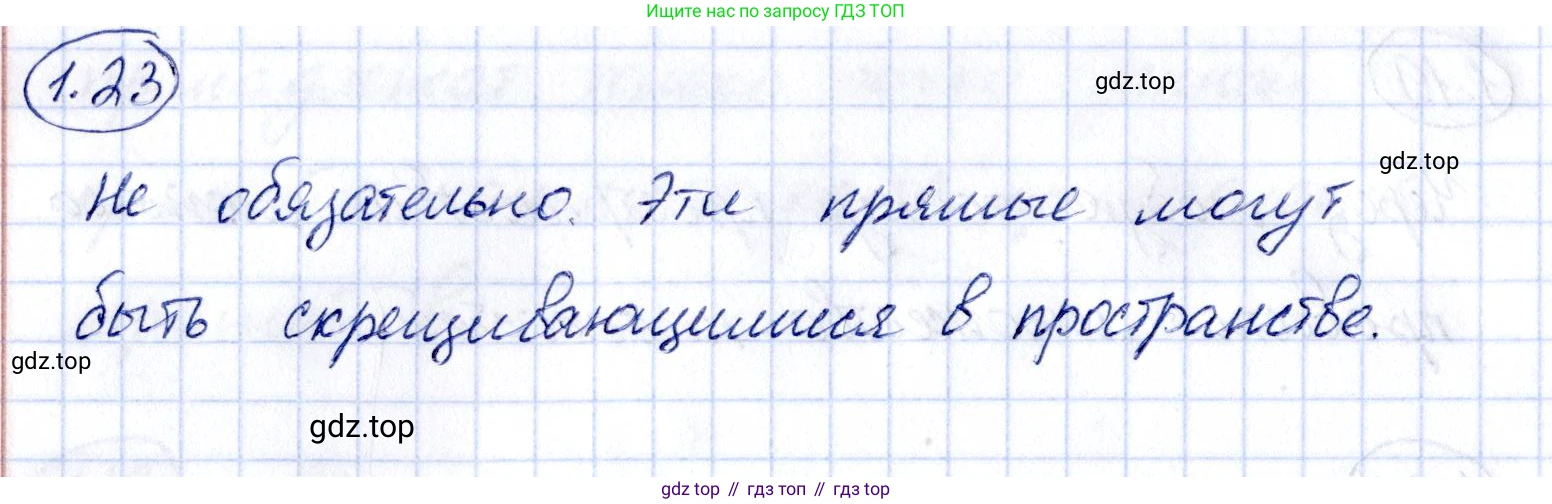 Ищите нас по запросу ГДЗ ТОП
1.23
gdz.top
gdz.top
Не обязательно. Эти прямые могут
быть скрещивающимися в пространстве.
gdz.top
gdz.top
gdz top // гдз топ // гдз top